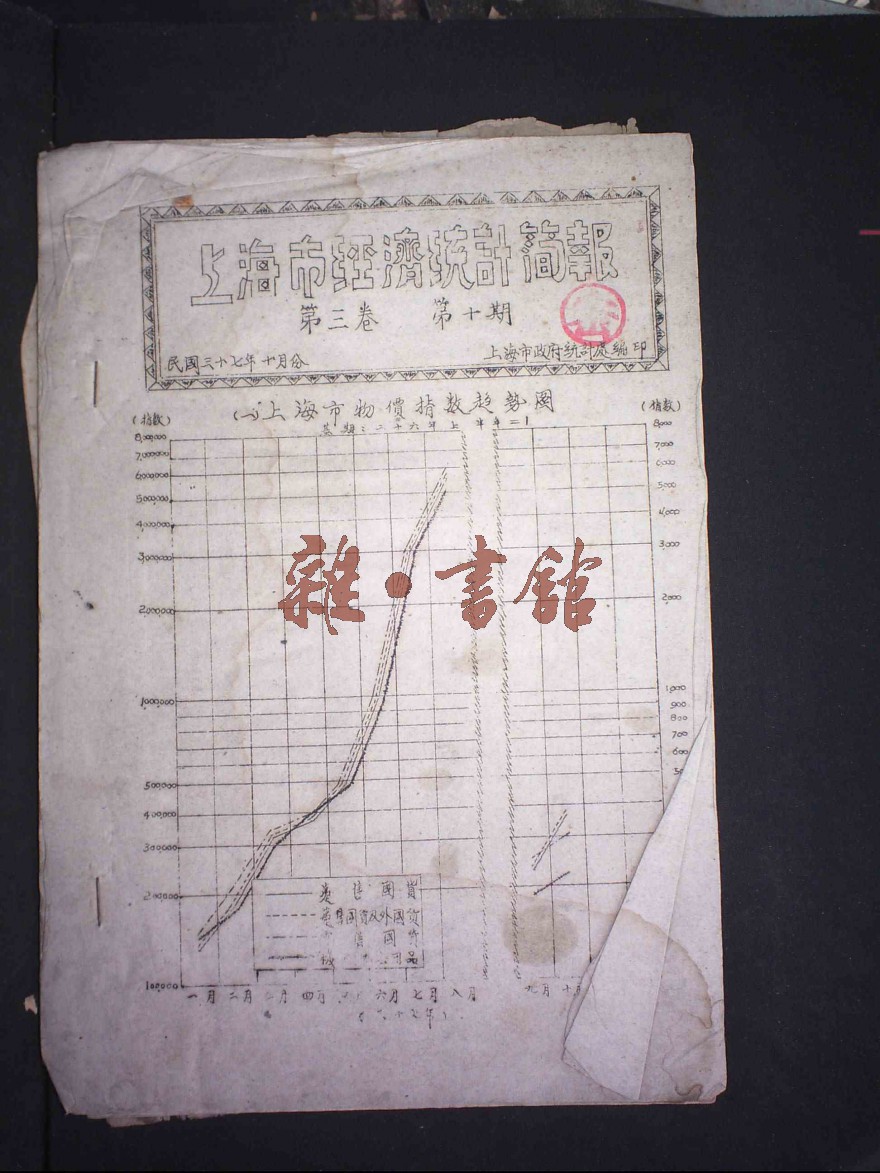 上海市經濟統計简報
第三卷 第十期
民國三十七年十月份
上海市政府統計處編印
(一)上海市物價指数趋勢圖
基期:二十六年上半年=1
(指数)
8,000,000
7,000,000
6,000,000
5,000,000
4,000,000
3,000,000
2,000,000
1,000,000
500,000
400,000
300,000
200,000
100,000
(指数)
8,000
7,000
6,000
5,000
4,000
3,000
2,000
1,000
900
800
700
600
雜·書館
國貨
國貨及外國貨
一月 二月 月 四月 六月 七月 八月 九月 十月